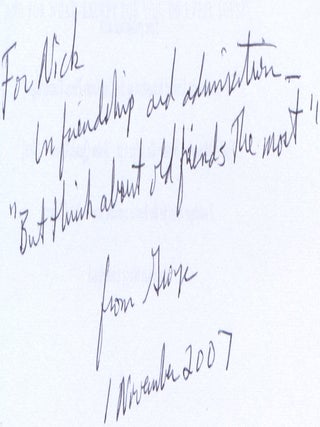 For Nick
In friendship and admiration —
"But think about old friends the most"
from George
1 November 2007